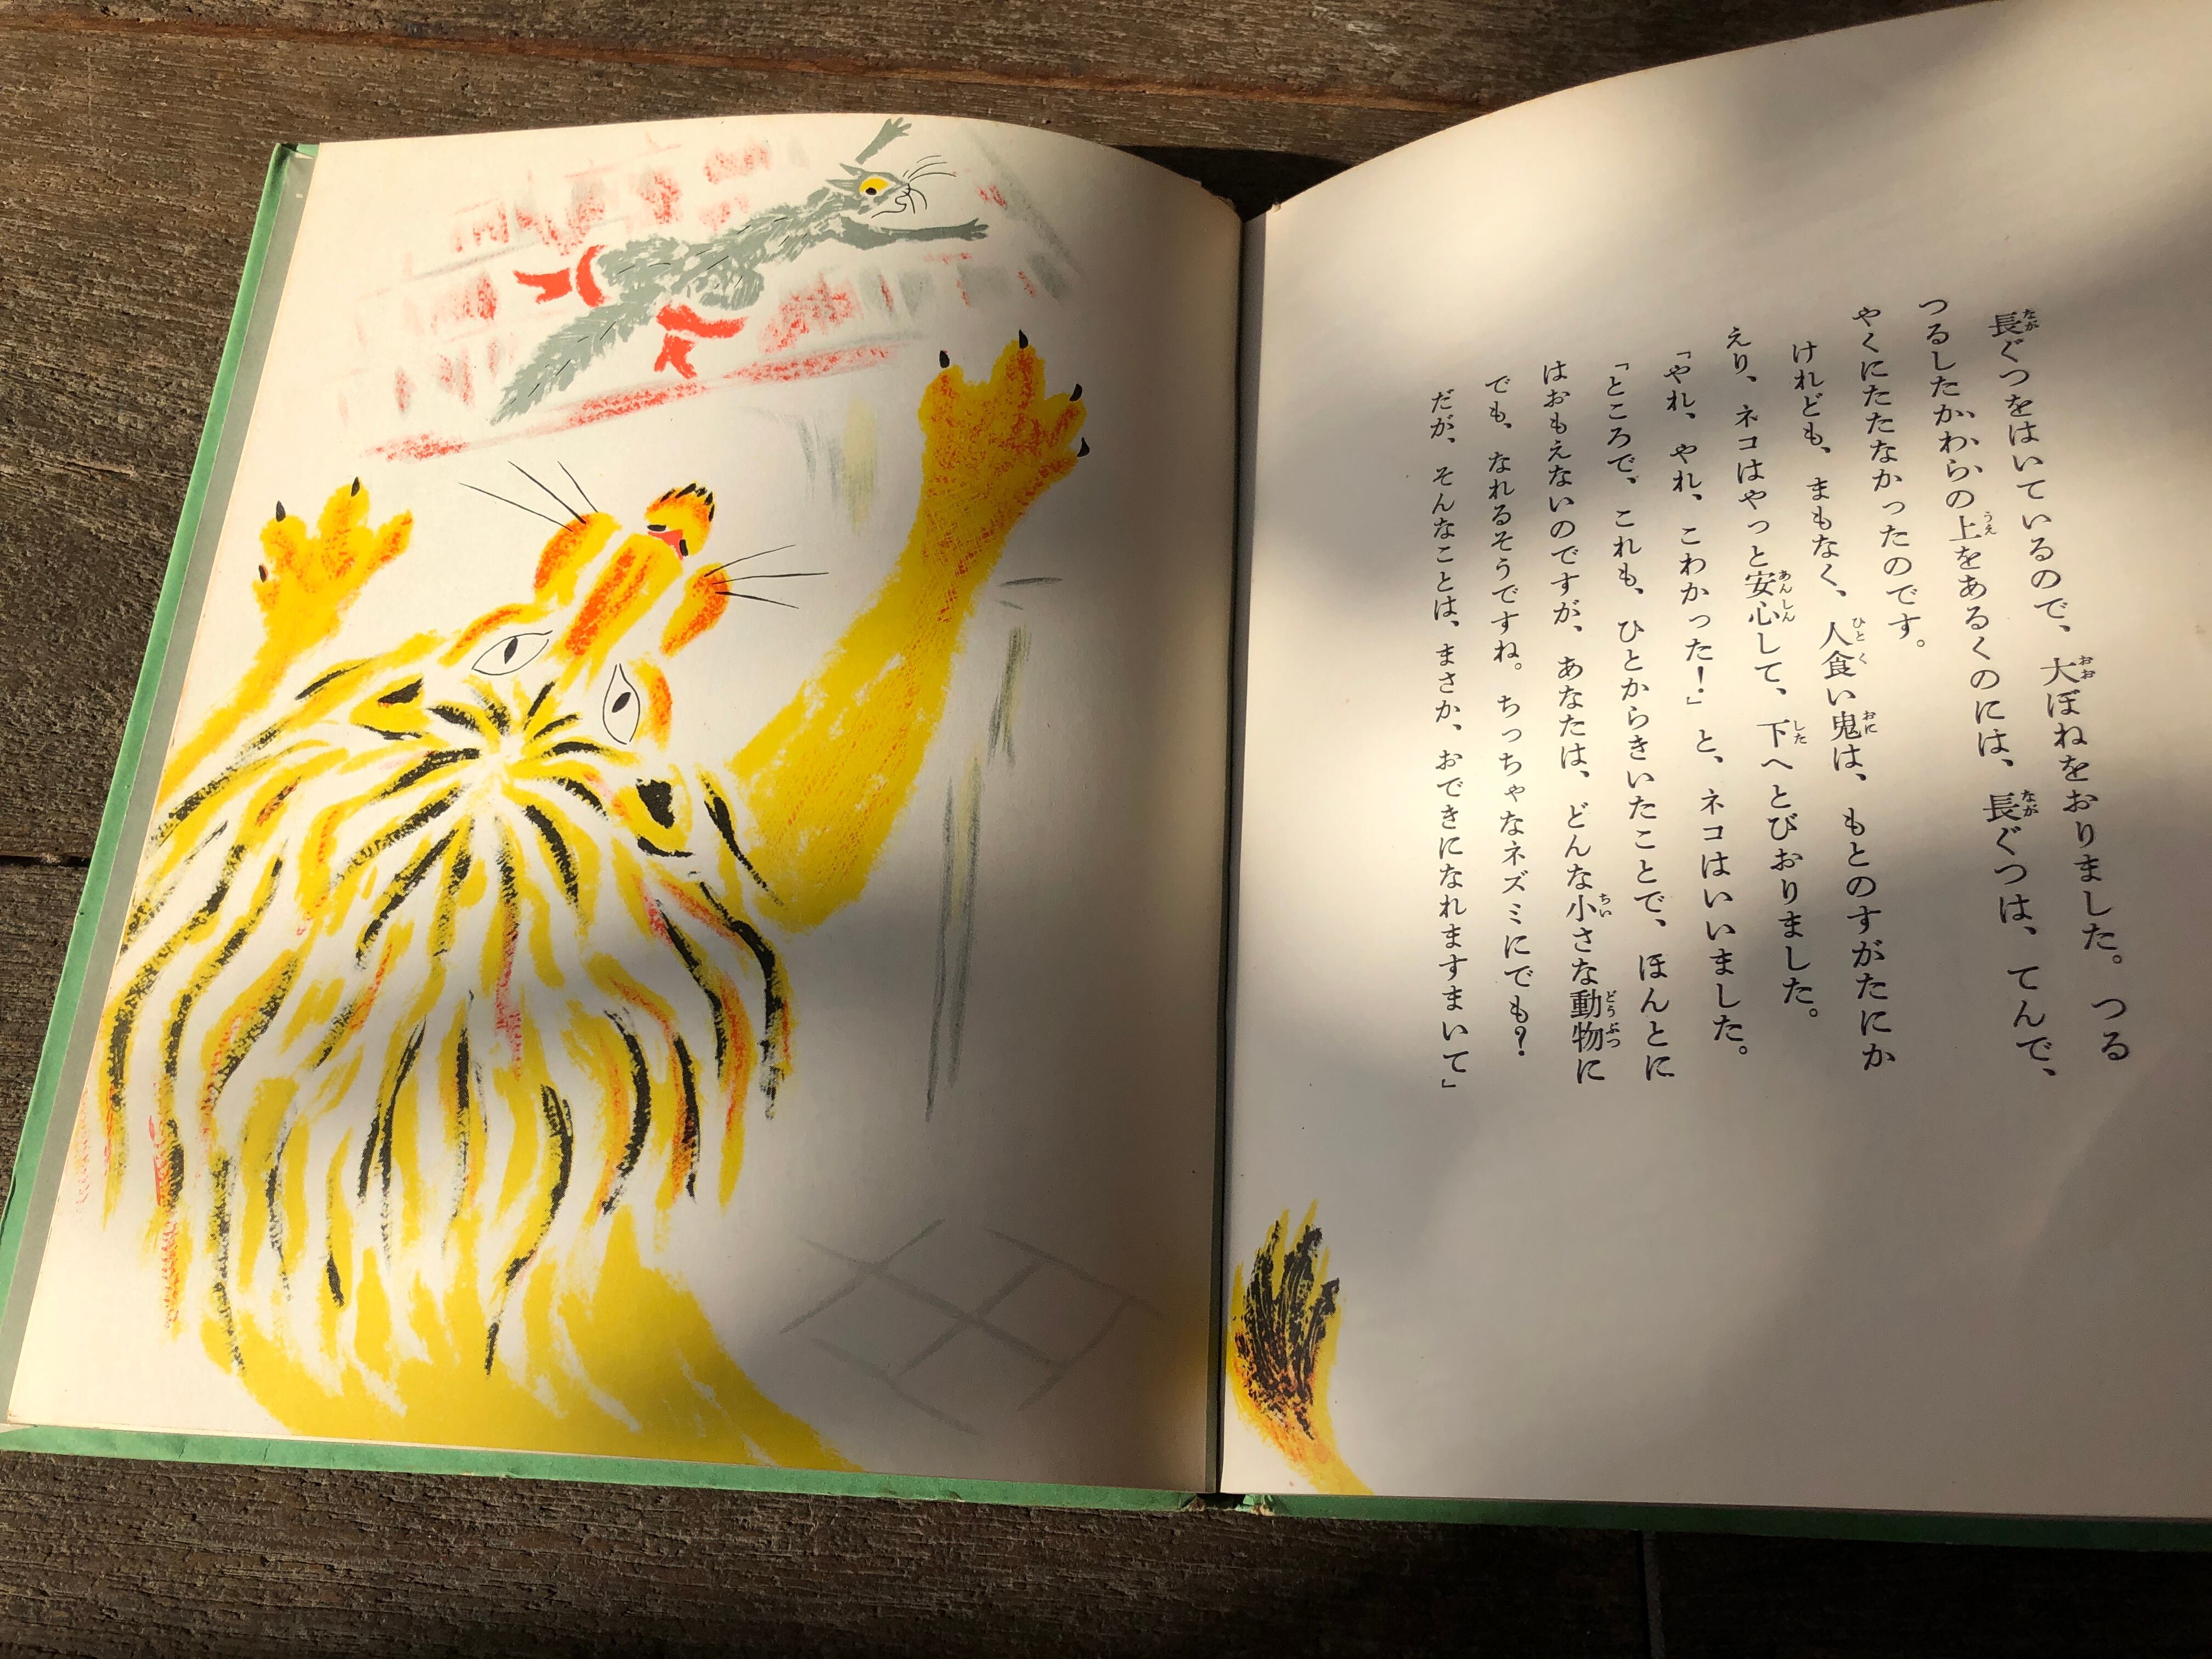 長ぐつをはいているので、大ぼねをおりました。つる
つるしたかわらの上をあるくのには、長ぐつは、てんで、
やくにたたなかったのです。
けれども、まもなく、人食い鬼は、もとのすがたにか
えり、ネコはやっと安心して、下へとびおりました。
「やれ、やれ、こわかった!」と、ネコはいいました。
「ところで、これも、ひとからきいたことで、ほんとに
はおもえないのですが、あなたは、どんな小さな動物に
でも、なれるそうですね。ちっちゃなネズミにでも?
だが、そんなことは、まさか、おできになれますまいて」